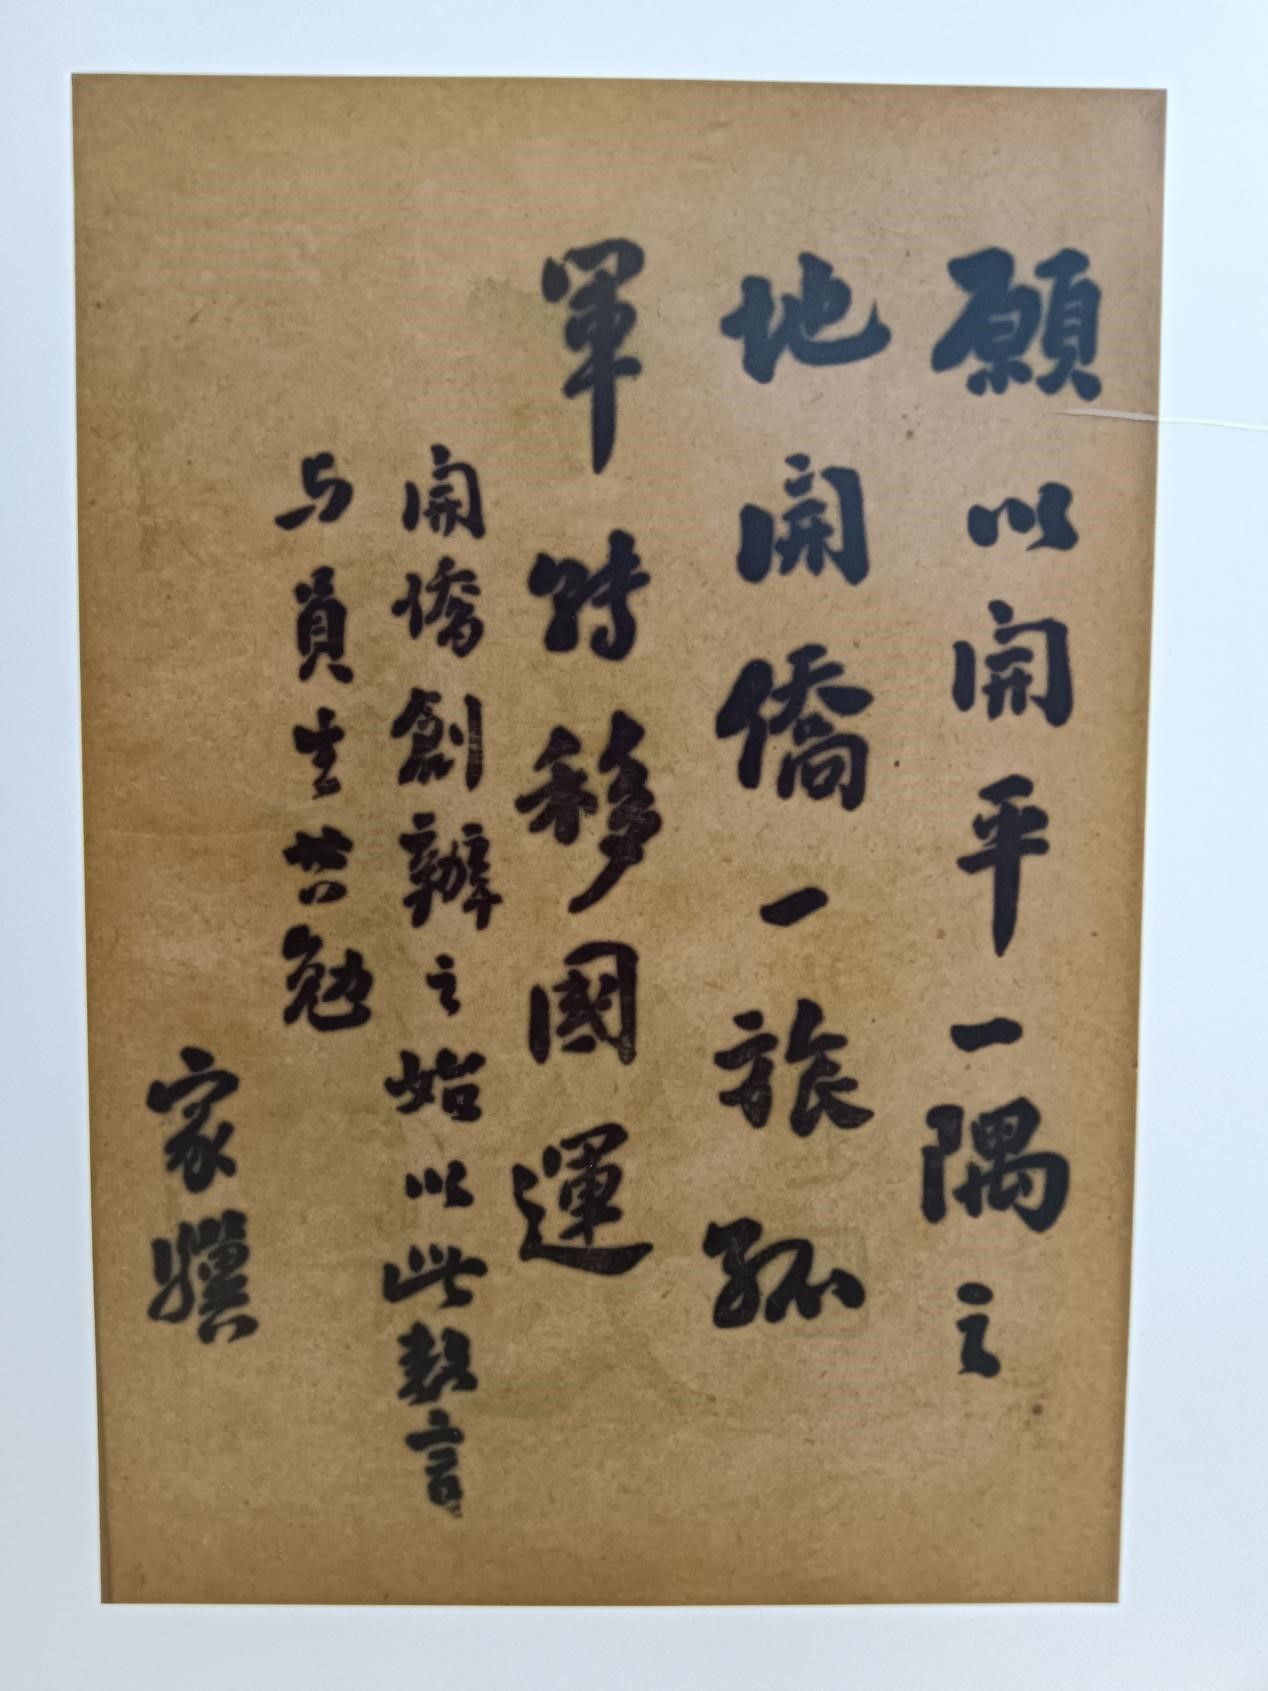 願以開平一隅之
地開僑一旅孤
軍轉移國運
開僑創辦之始以此數言
与員生共勉
家驥